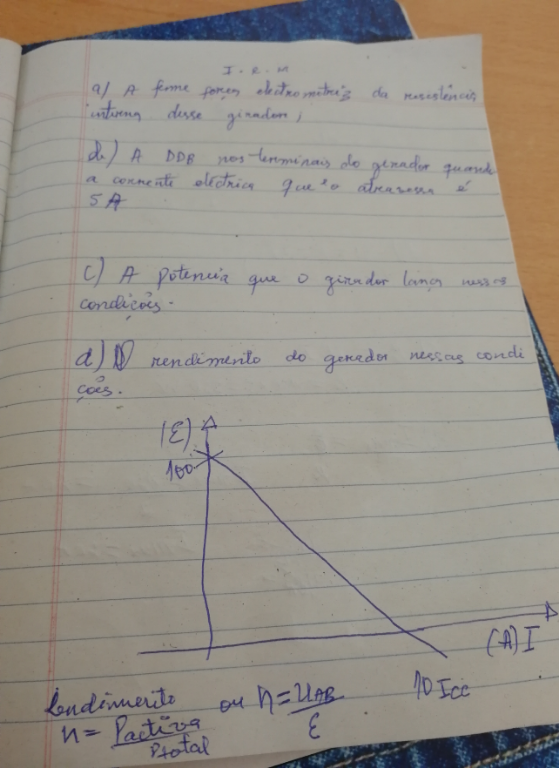 I. R. M
a) A feme força electromotriz da resistência
interna desse girador;
b) A DDB nos terminais do gerador quando
a corrente eléctrica que o atravessa é
5 A
c) A potencia que o girador lança nessas
condições.
d) O rendimento do gerador nessas condi
ções.
(E)
100
(A) I
10 Icc
Rendimento ou n = UAB / E
n = Pactiva / Ptotal